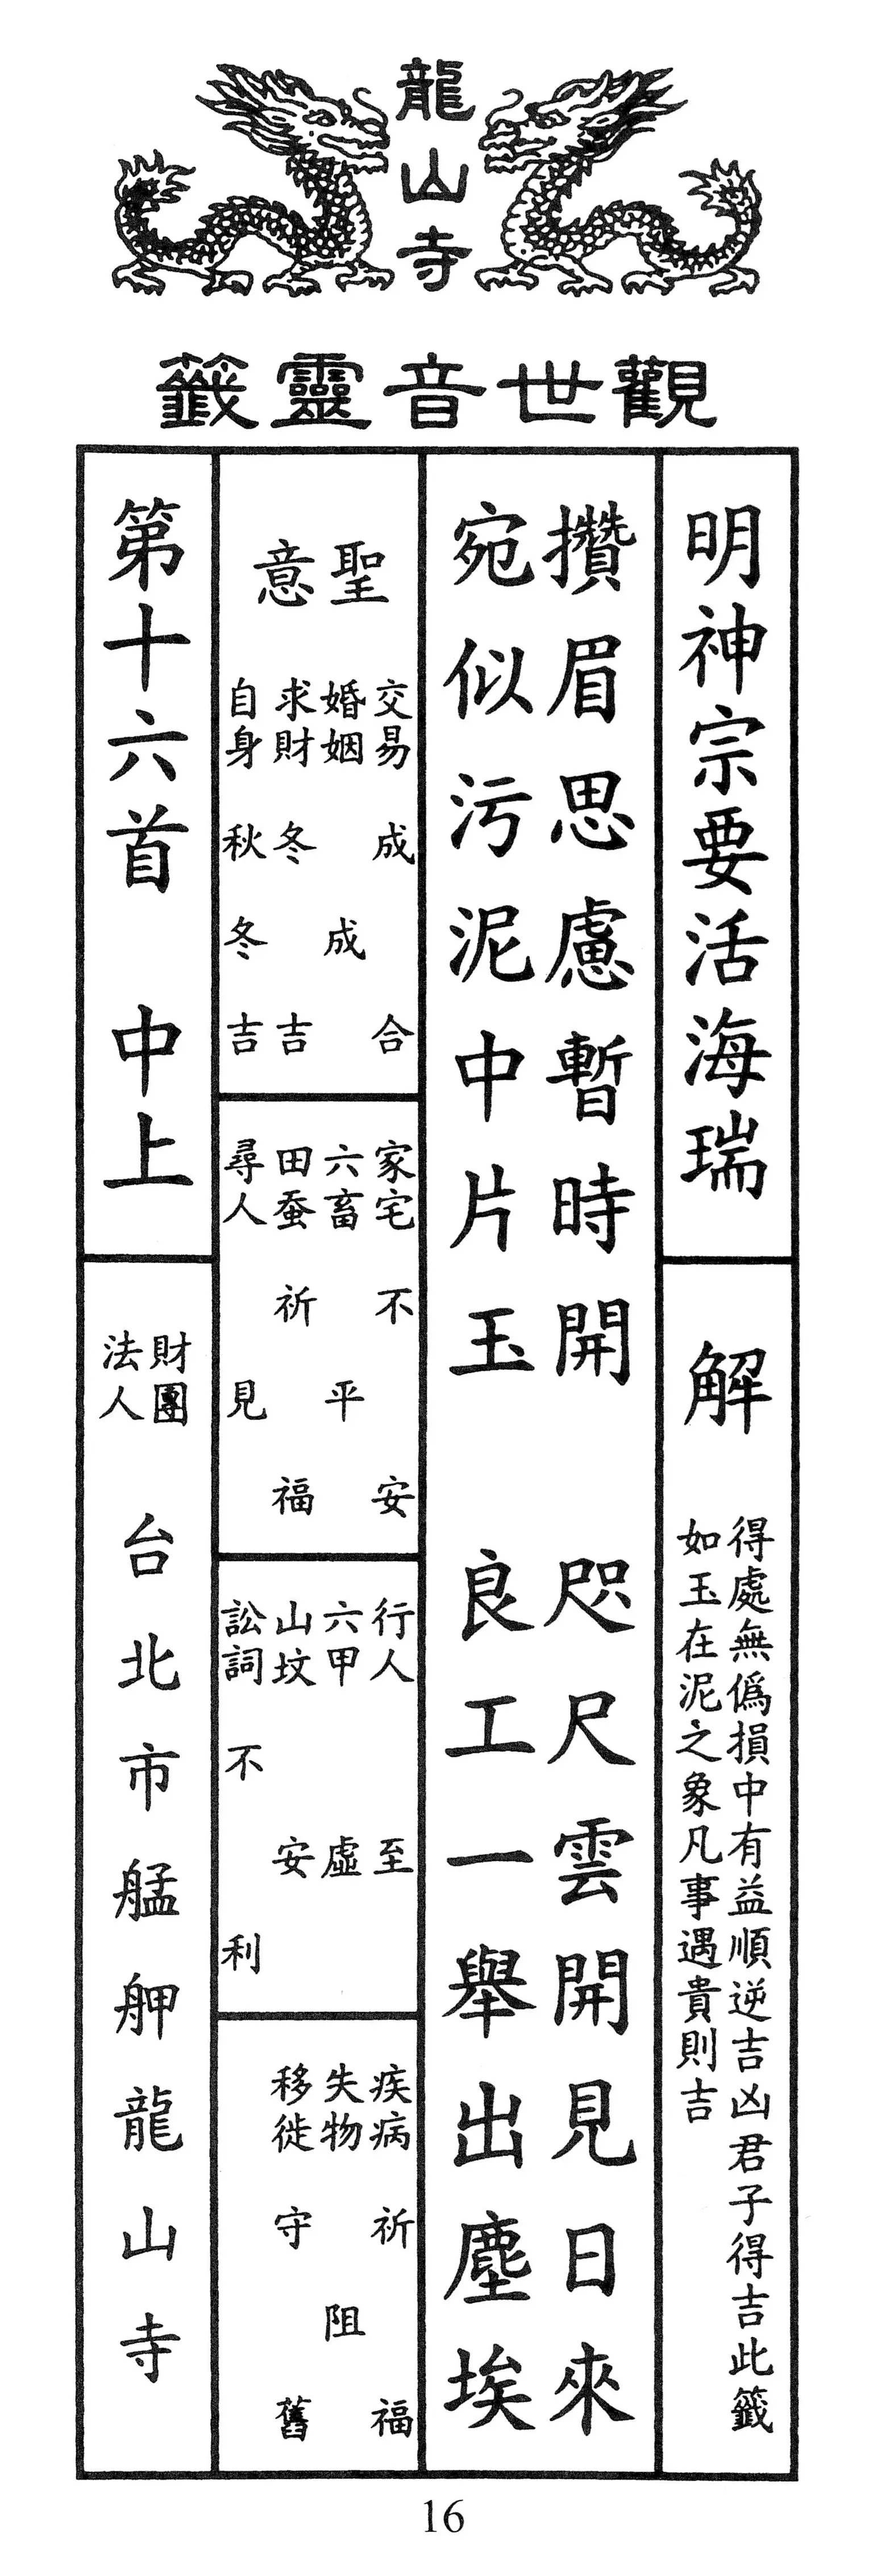 龍山寺
觀世音靈籤
明神宗要活海瑞
解
得處無僞損中有益順逆吉凶君子得吉此籤
如玉在泥之象凡事遇貴則吉
攢眉思慮暫時開 咫尺雲開見日來
宛似污泥中片玉 良工一舉出塵埃
聖意
交易 成合
婚姻 成
求財 冬吉
自身 秋冬吉
家宅 不安
六畜 平
田蚕 祈福
尋人 見
行人 至
六甲 虛
山坟 安
訟詞 不利
疾病 祈福
失物 阻
移徙 守舊
第十六首 中上
財團法人 台北市艋舺龍山寺
16